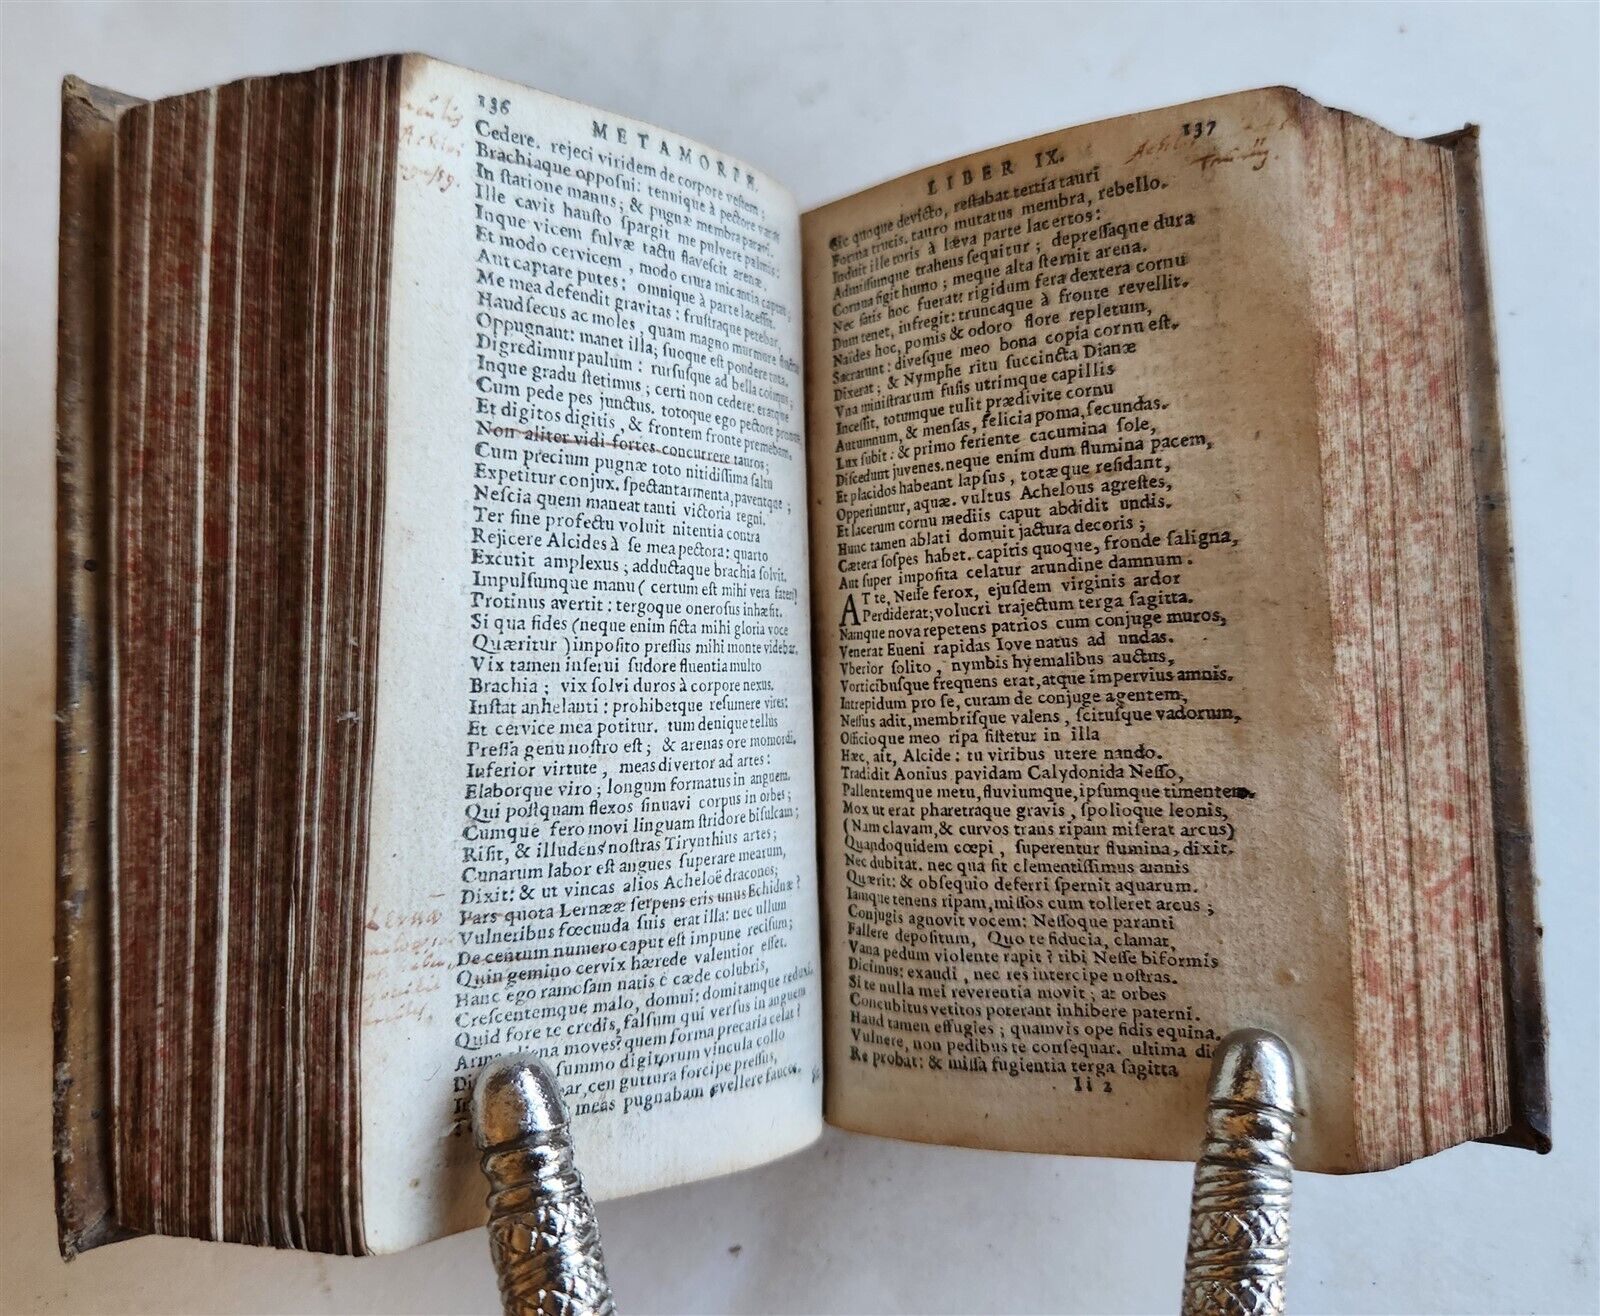 136
METAMORPH.
Cedere. rejeci viridem de corpore vestem;
Brachiaque opposui: tenuique à pectore varas
In ſtatione manus; & pugnæ membra paravi.
Ille cavis hauſto ſpargit me pulvere palmis:
Inque vicem fulvæ tactu flaveſcit arenæ,
Et modo cervicem, modo crura micantia captat;
Aut captare putes: omnique à parte laceſſit.
Me mea defendit gravitas: fruſtraque petebar,
Haud ſecus ac moles, quam magno murmure fluctus
Oppugnant: manet illa; ſuoque eſt pondere tuta.
Digredimur paulum: rurſuſque ad bella coimus;
Inque gradu ſtetimus; certi non cedere: eratque
Cum pede pes junctus. totoque ego pectore pronus,
Et digitos digitis, & frontem fronte premebam.
Non aliter vidi fortes concurrere tauros;
Cum precium pugnæ toto nitidiſſima ſaltu
Expetitur conjux. ſpectant armenta, paventque;
Neſcia quem maneat tanti victoria regni.
Ter ſine profectu voluit nitentia contra
Rejicere Alcides à ſe mea pectora: quarto
Excutit amplexus; adductaque brachia ſolvit.
Impulſumque manu (certum eſt mihi vera fateri)
Protinus avertit: tergoque oneroſus inhæſit.
Si qua fides (neque enim ficta mihi gloria voce
Quæritur) impoſito preſſus mihi monte videbar.
Vix tamen inſerui ſudore fluentia multo
Brachia; vix ſolvi duros à corpore nexus.
Inſtat anhelanti: prohibetque reſumere vires:
Et cervice mea potitur. tum denique tellus
Preſſa genu noſtro eſt; & arenas ore momordi.
Inferior virtute, meas divertor ad artes:
Elaborque viro; longum formatus in anguem.
Qui poſtquam flexos ſinuavi corpus in orbes;
Cumque fero movi linguam ſtridore biſulcam;
Riſit, & illudens noſtras Tirynthius artes;
Cunarum labor eſt angues ſuperare mearum,
Dixit: & ut vincas alios Acheloë dracones;
Pars quota Lernææ ſerpens eris unus Echidnæ?
Vulneribus fœcunda ſuis erat illa: nec ullum
De centum numero caput eſt impune reciſum;
Quin gemino cervix hærede valentior eſſet.
Hanc ego ramoſam natis è cæde colubris,
Creſcentemque malo, domui: domitamque reduxi.
Quid fore te credis, falſum qui verſus in anguem
Arma aliena moves? quem forma precaria celat?
summo digitorum vincula collo
ceu guttura forcipe preſſus,
meas pugnabam evellere fauces.
Lernæ
LIBER IX.
137
Sic quoque devicto, reſtabat tertia tauri
Forma trucis. tauro mutatus membra, rebello.
Induit ille toris à læva parte lacertos:
Admiſſumque trahens ſequitur; depreſſaque dura
Cornua figit humo; meque alta ſternit arena.
Nec ſatis hoc fuerat: rigidum fera dextera cornu
Dum tenet, infregit: truncaque à fronte revellit.
Naides hoc, pomis & odoro flore repletum,
Sacrarunt: diveſque meo bona copia cornu eſt.
Dixerat; & Nymphe ritu ſuccincta Dianæ
Vna miniſtrarum fuſis utrimque capillis
Inceſſit, totumque tulit prædivite cornu
Autumnum, & menſas, felicia poma, ſecundas.
Lux ſubit: & primo feriente cacumina ſole,
Diſcedunt juvenes. neque enim dum flumina pacem,
Et placidos habeant lapſus, totæque reſidant,
Opperiuntur, aquæ. vultus Achelous agreſtes,
Et lacerum cornu mediis caput abdidit undis.
Hunc tamen ablati domuit jactura decoris;
Cætera ſoſpes habet. capitis quoque, fronde ſaligna,
Aut ſuper impoſita celatur arundine damnum.
AT te, Neſſe ferox, ejuſdem virginis ardor
Perdiderat; volucri trajectum terga ſagitta.
Namque nova repetens patrios cum conjuge muros,
Venerat Eueni rapidas Iove natus ad undas.
Vberior ſolito, nymbis hyemalibus auctus,
Vorticibuſque frequens erat, atque impervius amnis.
Intrepidum pro ſe, curam de conjuge agentem,
Neſſus adit, membriſque valens, ſcituſque vadorum,
Officioque meo ripa ſiſtetur in illa
Hæc, ait, Alcide: tu viribus utere nando.
Tradidit Aonius pavidam Calydonida Neſſo,
Pallentemque metu, fluviumque, ipſumque timentem.
Mox ut erat pharetraque gravis, ſpolioque leonis,
(Nam clavam, & curvos trans ripam miſerat arcus)
Quandoquidem cœpi, ſuperentur flumina, dixit.
Nec dubitat. nec qua ſit clementiſſimus amnis
Quærit: & obſequio deferri ſpernit aquarum.
Iamque tenens ripam, miſſos cum tolleret arcus;
Conjugis agnovit vocem: Neſſoque paranti
Fallere depoſitum, Quo te fiducia, clamat,
Vana pedum violente rapit? tibi Neſſe biformis
Dicimus: exaudi, nec res intercipe noſtras.
Si te nulla mei reverentia movit; at orbes
Concubitus vetitos poterant inhibere paterni.
Haud tamen effugies; quamvis ope fidis equina.
Vulnere, non pedibus te conſequar. ultima
Re probat: & miſſa fugientia terga ſagitta
Ii 2